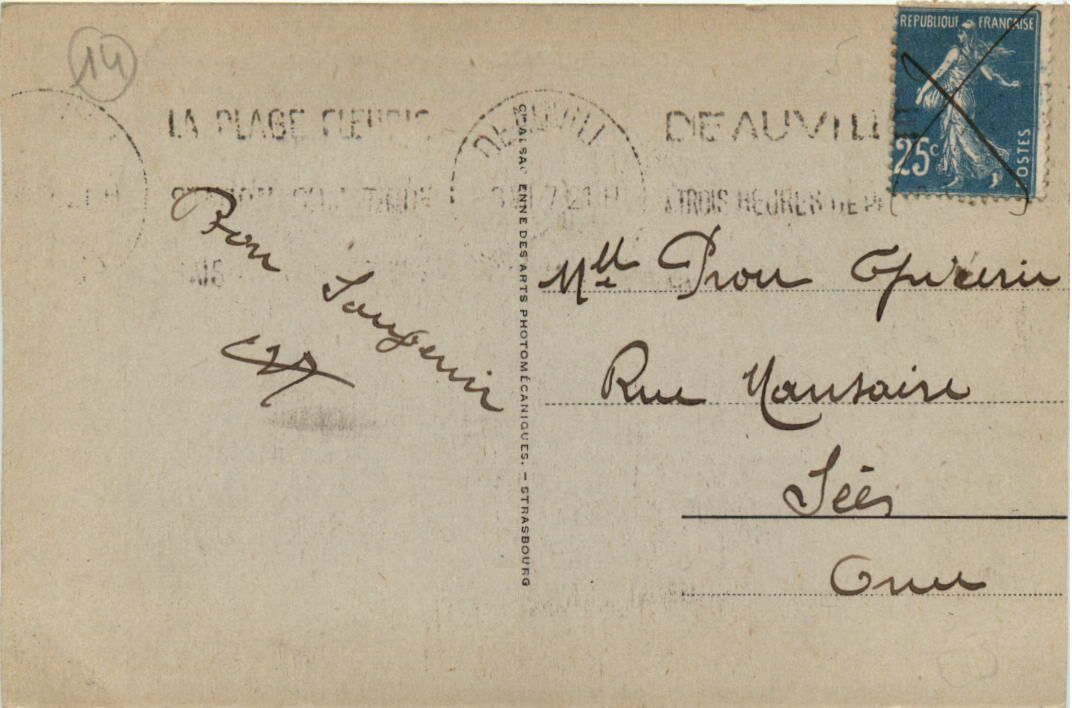 14
LA PLAGE FLEURIE
DEAUVILLE
DEAUVILLE
A TROIS HEURES DE PA
REPUBLIQUE FRANÇAISE
25c
POSTES
Bon
Souvenir
CIE ALSACIENNE DES ARTS PHOTOMÉCANIQUES. – STRASBOURG
Mlle Prou Epicerie
Rue
Sées
Orne